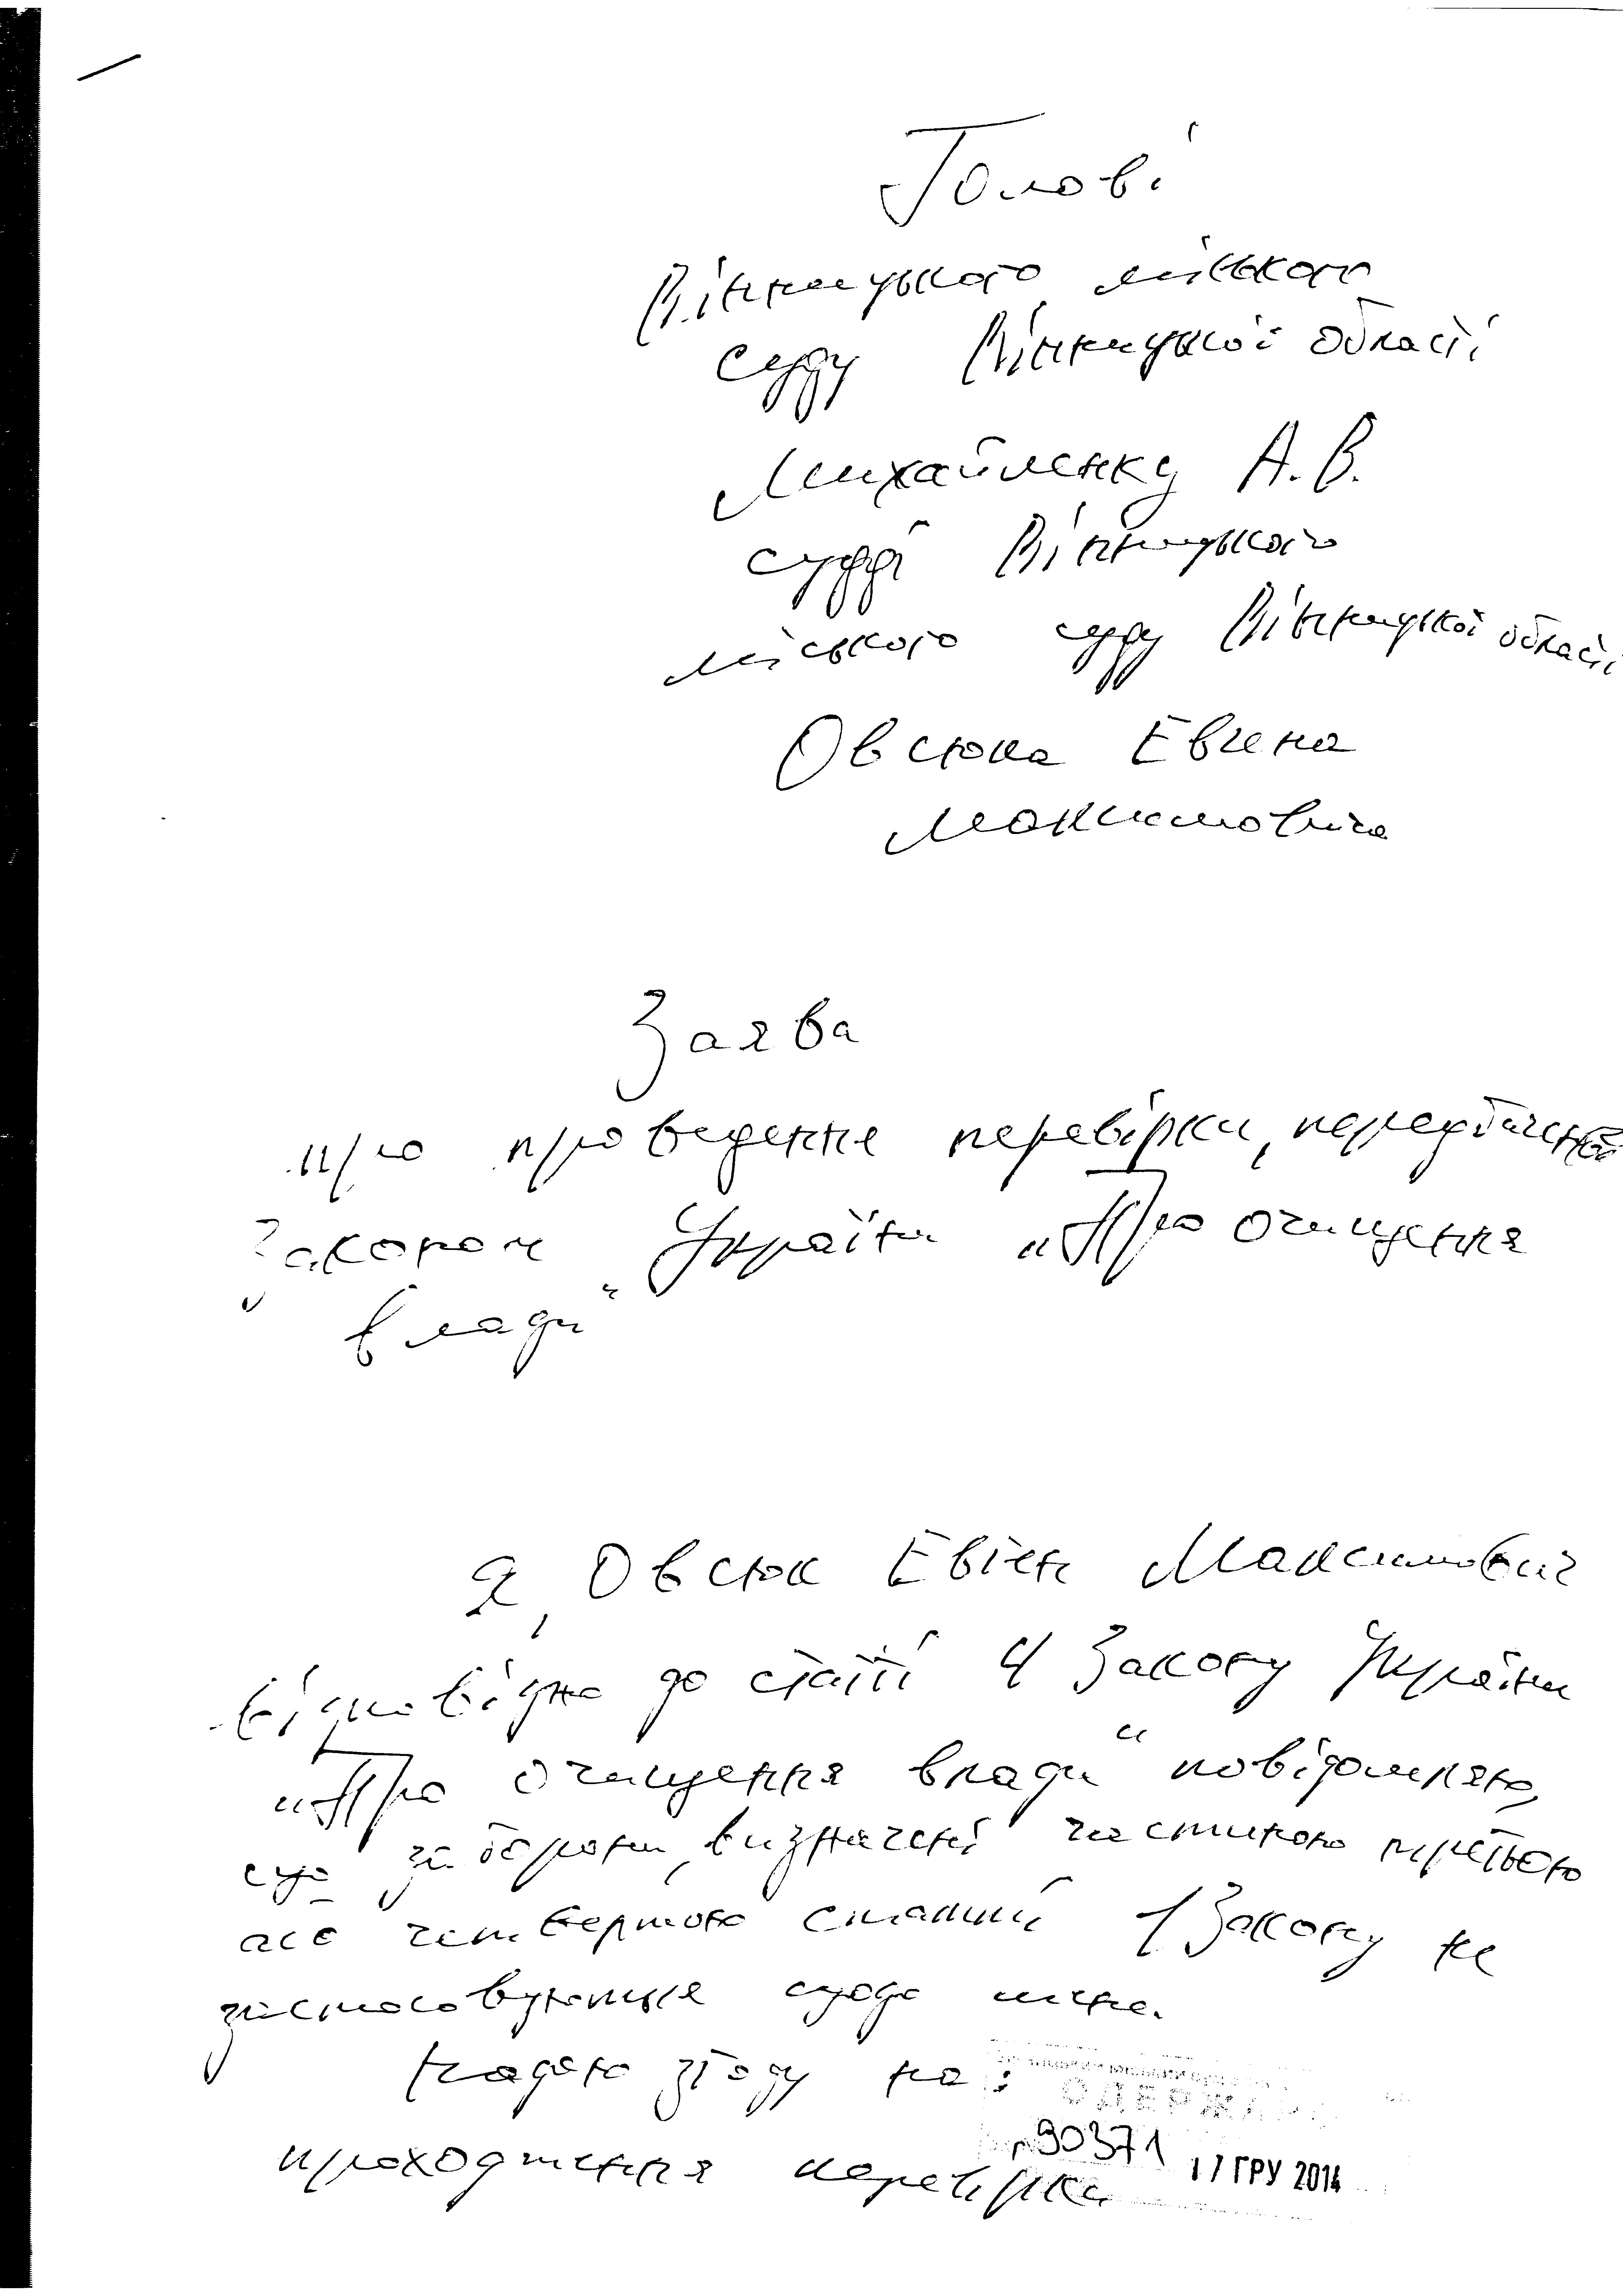 Голові
Вінницького міського
суду Вінницької області
Михайленку А. В.
судді Вінницького
міського суду Вінницької області
Овсюка Евгена
Максимовича
Заява
про проведення перевірки, передбаченої
Законом України „Про очищення
влади"
Я, Овсюк Евген Максимович
відповідно до статті 4 Закону України
„Про очищення влади" повідомляю,
що заборони, визначені частиною третьою
або четвертою статті 1 Закону не
застосовуються щодо мене.
Надаю згоду на:
проходження перевірки
ОДЕРЖАНО
90371
17 ГРУ 2014